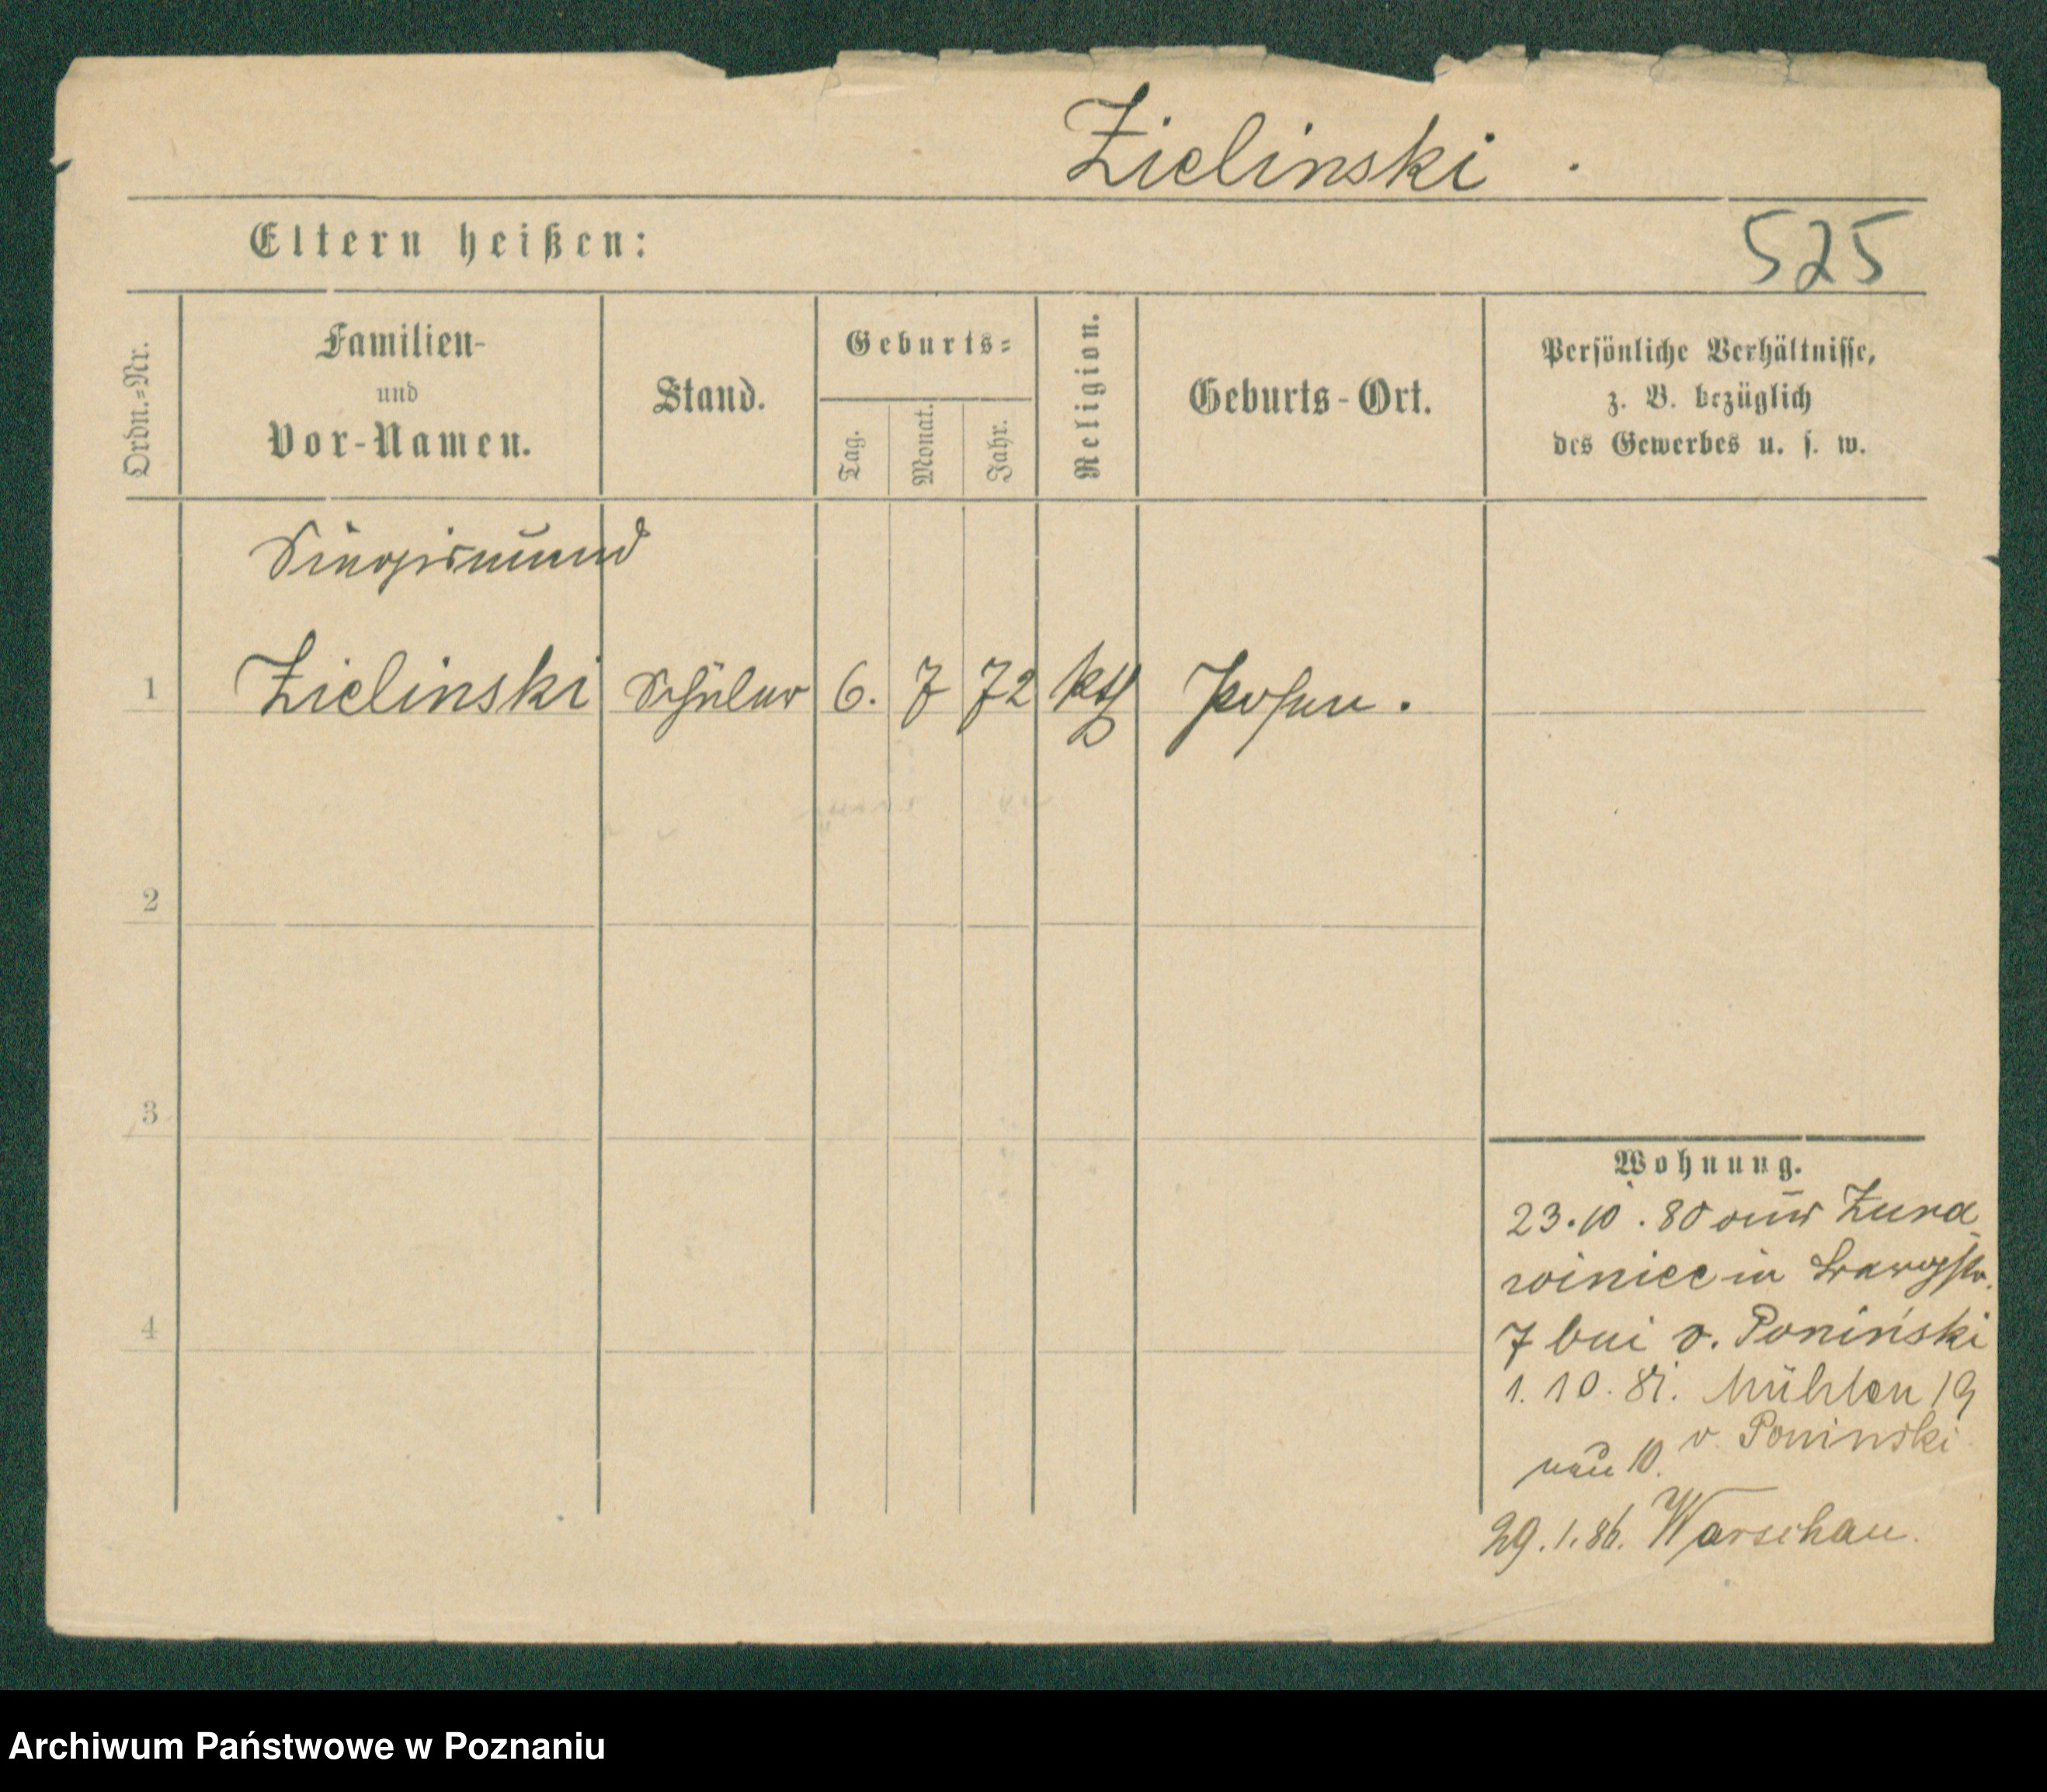 Zielinski.
Eltern heißen:
525
Ordn.=Nr.
Familien-
und
Vor-Namen.
Stand.
Geburts=
Tag.
Monat.
Jahr.
Religion.
Geburts-Ort.
Persönliche Verhältnisse,
z. B. bezüglich
des Gewerbes u. s. w.
Siegismund
1 Zielinski Schüler 6. 7 72 kth Posen.
2
3
4
Wohnung.
23.10.80 aus
winiec in
7 bei v. Poniński
1. 10. 81. Mühlen 19
v Poninski
neu 10.
29.1.86. Warschau.
Archiwum Państwowe w Poznaniu